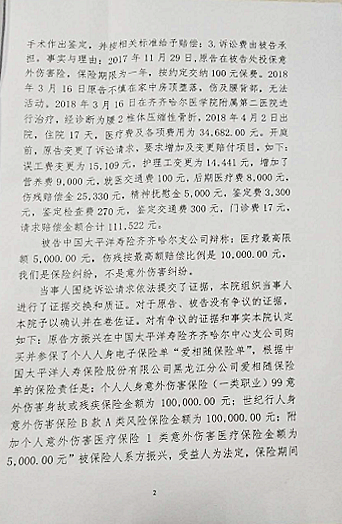 手术作出鉴定，并按相关标准给予赔偿；3.诉讼费由被告承
担。事实与理由：2017 年 11 月 29 日，原告在被告处投保意
外伤害险，保险期限为一年，按约定交纳 100 元保费。2018
年 3 月 16 日原告不慎在家中房顶坠落，伤及腰背部，无法
活动。2018 年 3 月 16 日在齐齐哈尔医学院附属第二医院进
行治疗，经诊断为腰 2 椎体压缩性骨折，2018 年 4 月 2 日出
院，住院 17 天，医疗费及各项费用为 34,682.00 元。开庭
前，原告变更了诉讼请求，要求增加及变更赔付项目，如下：
误工费变更为 15,109 元，护理工变更为 14,441 元，增加了
营养费 9,000 元，就医交通费 100 元，后期医疗费 8,000 元，
伤残赔偿金 25,330 元，精神抚慰金 5,000 元，鉴定费 3,300
元，鉴定检查费 270 元，鉴定交通费 300 元，门诊费 17 元，
请求赔偿金额合计 111,522 元。
被告中国太平洋寿险齐齐哈尔支公司辩称：医疗最高限
额 5,000.00 元，伤残按最高额赔偿比例是 10,000.00 元，
我们是保险纠纷，不是意外伤害纠纷。
当事人围绕诉讼请求依法提交了证据，本院组织当事人
进行了证据交换和质证。对于原告、被告没有争议的证据，
本院予以确认并在卷佐证。对有争议的证据和事实本院认定
如下：原告方振兴在中国太平洋寿险齐齐哈尔中心支公司购
买并参保了个人人身电子保险单“爱相随保险单”，根据中
国太平洋人寿保险股份有限公司黑龙江分公司爱相随保险
单的保险责任是：个人人身意外伤害保险（一类职业）99 意
外伤害身故或残疾保险金额为 100,000.00 元；世纪行人身
意外伤害保险 B 款 A 类风险保险金额为 100,000.00 元；附
加个人意外伤害医疗保险 1 类意外伤害医疗保险金额为
5,000.00 元”被保险人系方振兴，受益人为法定，保险期间
2